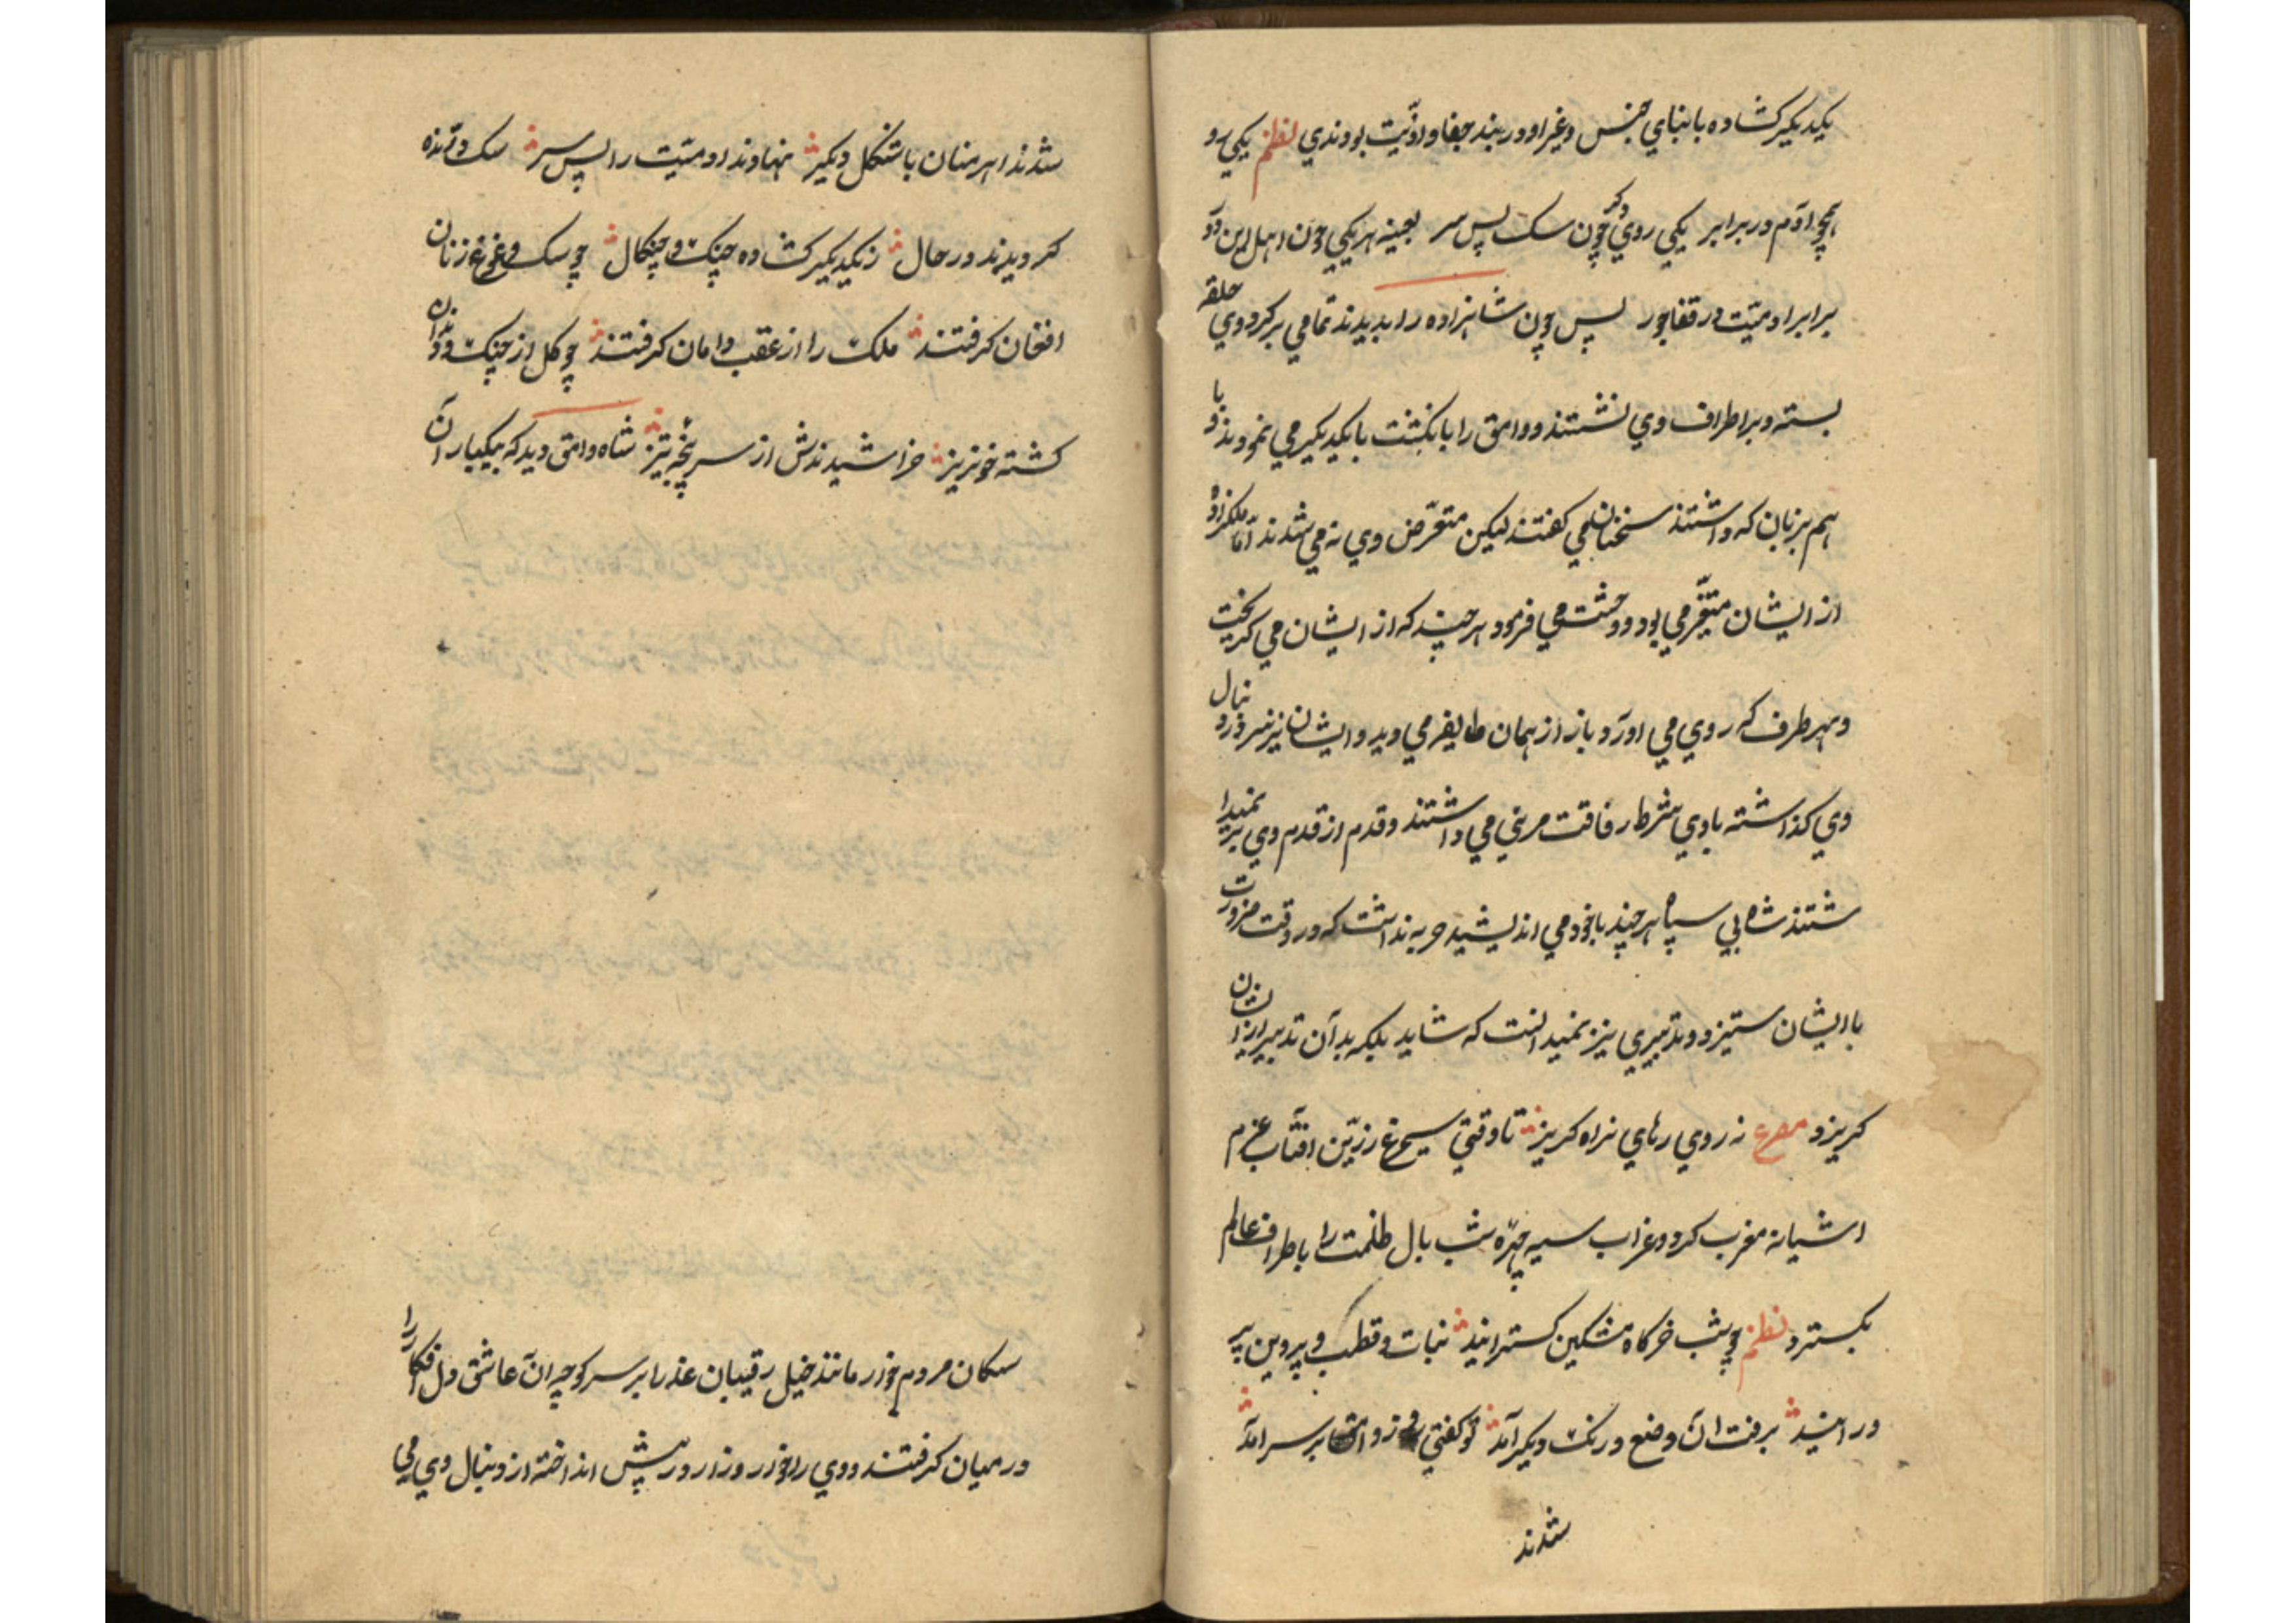 یکدیگر کشاده بابنای جنس و غیر او در بند جفا و اذیّت بودندی نظم یکی رو
همچو آدم در برابر یکی روی دکر چون سک پس سر بعینه هر یکی چون اهل این دَو
برابر ادمیّت در قفا جور پس چون شاهزاده را بدیدند تمامی بر کرد وی حلقه
بسته و بر اطراف وی نشستند و وامق را بانکشت بایکدیکر می نمودند و با
هم بزبان که داشتند سخنان می کفتند لیکن متعرّض وی نه می شدند امّا ملکزاده
از ایشان متنفّر می بود و وحشت می افزود هر چند که از ایشان می کریخت
و بهر طرف که روی می آورد باز از همان طایفه می دید و ایشان نیز سر در دنبال
وی کذاشته باوی شرط رفاقت مرعی می داشتند و قدم از قدم وی بر نمیدا
شتند شاه بی سپاه هر چند باخود می اندیشید حربه نداشت که در وقت ضرورت
با ایشان ستیزد و تدبیری نیز نمیدانست که شاید بلکه بدآن تدبیر از ایشان
کریزد مصرع نه روی رهای نه راه کریز تا وقتی سیمرغ زرّین آفتاب عزم
اشیانه مغرب کرد و غراب سیه چهرهٔ شب بال ظلمت را باطراف عالم
بکسترد نظم چو شب خرکاه مشکین کسترانید بنات و قطب و پروین
برفت آن وضع و رنک دیکر آمد تو کفتی روز وامق بر سر آمد
شدند
شدند اهرمنان باشکل دیکر نهادند ادمیّت را پس سر سک درّنده
کردیدند در حال ز یکدیکر کشاده چنک و چنکال چو سک وغ وغ زنان
افغان کرفتند ملک را از عقب دامان کرفتند چو کل از چنک و دندان
کشته خونریز خراشیدندش از سر پنجهٔ تیز شاه وامق دید که بیکبار آن
سکان مردم خور مانند خیل رقیبان عذرا بر سر کوچه آن عاشق دل افکار را
در میان کرفتند و وی را خوار و زار در پیش انداخته از دنبال وی می